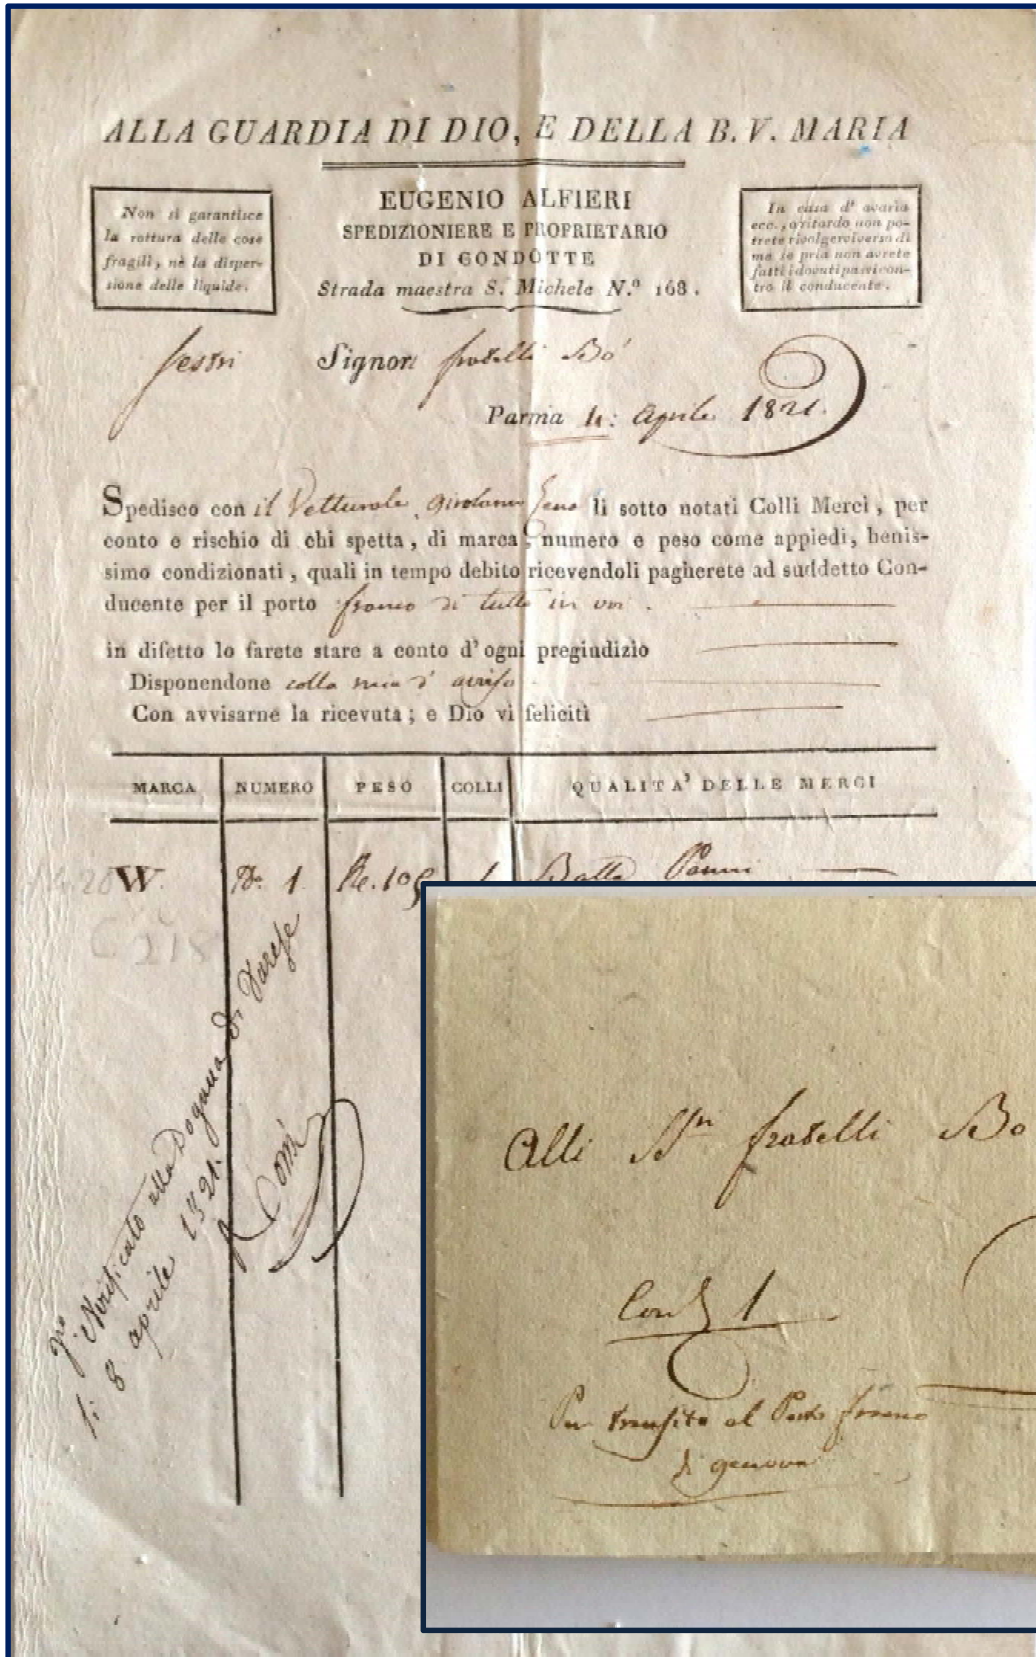 ALLA GUARDIA DI DIO, E DELLA B. V. MARIA
Non si garantisce
la rottura delle cose
fragili, nè la disper-
sione delle liquide.
EUGENIO ALFIERI
SPEDIZIONIERE E PROPRIETARIO
DI CONDOTTE
Strada maestra S. Michele N.º 168.
In casa d' avaria
ecc., o ritardo non po-
trete rivolgervi verso di
me se pria non avrete
fatti i dovuti passi con-
tro il conducente.
Sestri Signori fratelli Bo'
Parma 4: Aprile 1821.
Spedisco con il Vetturale Girolamo li sotto notati Colli Merci, per
conto e rischio di chi spetta, di marca, numero e peso come appiedi, benis-
simo condizionati, quali in tempo debito ricevendoli pagherete ad suddetto Con-
ducente per il porto franco di tutto in
in difetto lo farete stare a conto d'ogni pregiudizio
Disponendone colla mia d' avviso
Con avvisarne la ricevuta; e Dio vi feliciti
MARCA NUMERO PESO COLLI QUALITA' DELLE MERCI
W. No. 1 1 Balla Panni
Verificato alla Dogana di Varese
li 8 aprile 1821.
Alli Sri fratelli Bo
1
Per transito al Porto franco
di genova